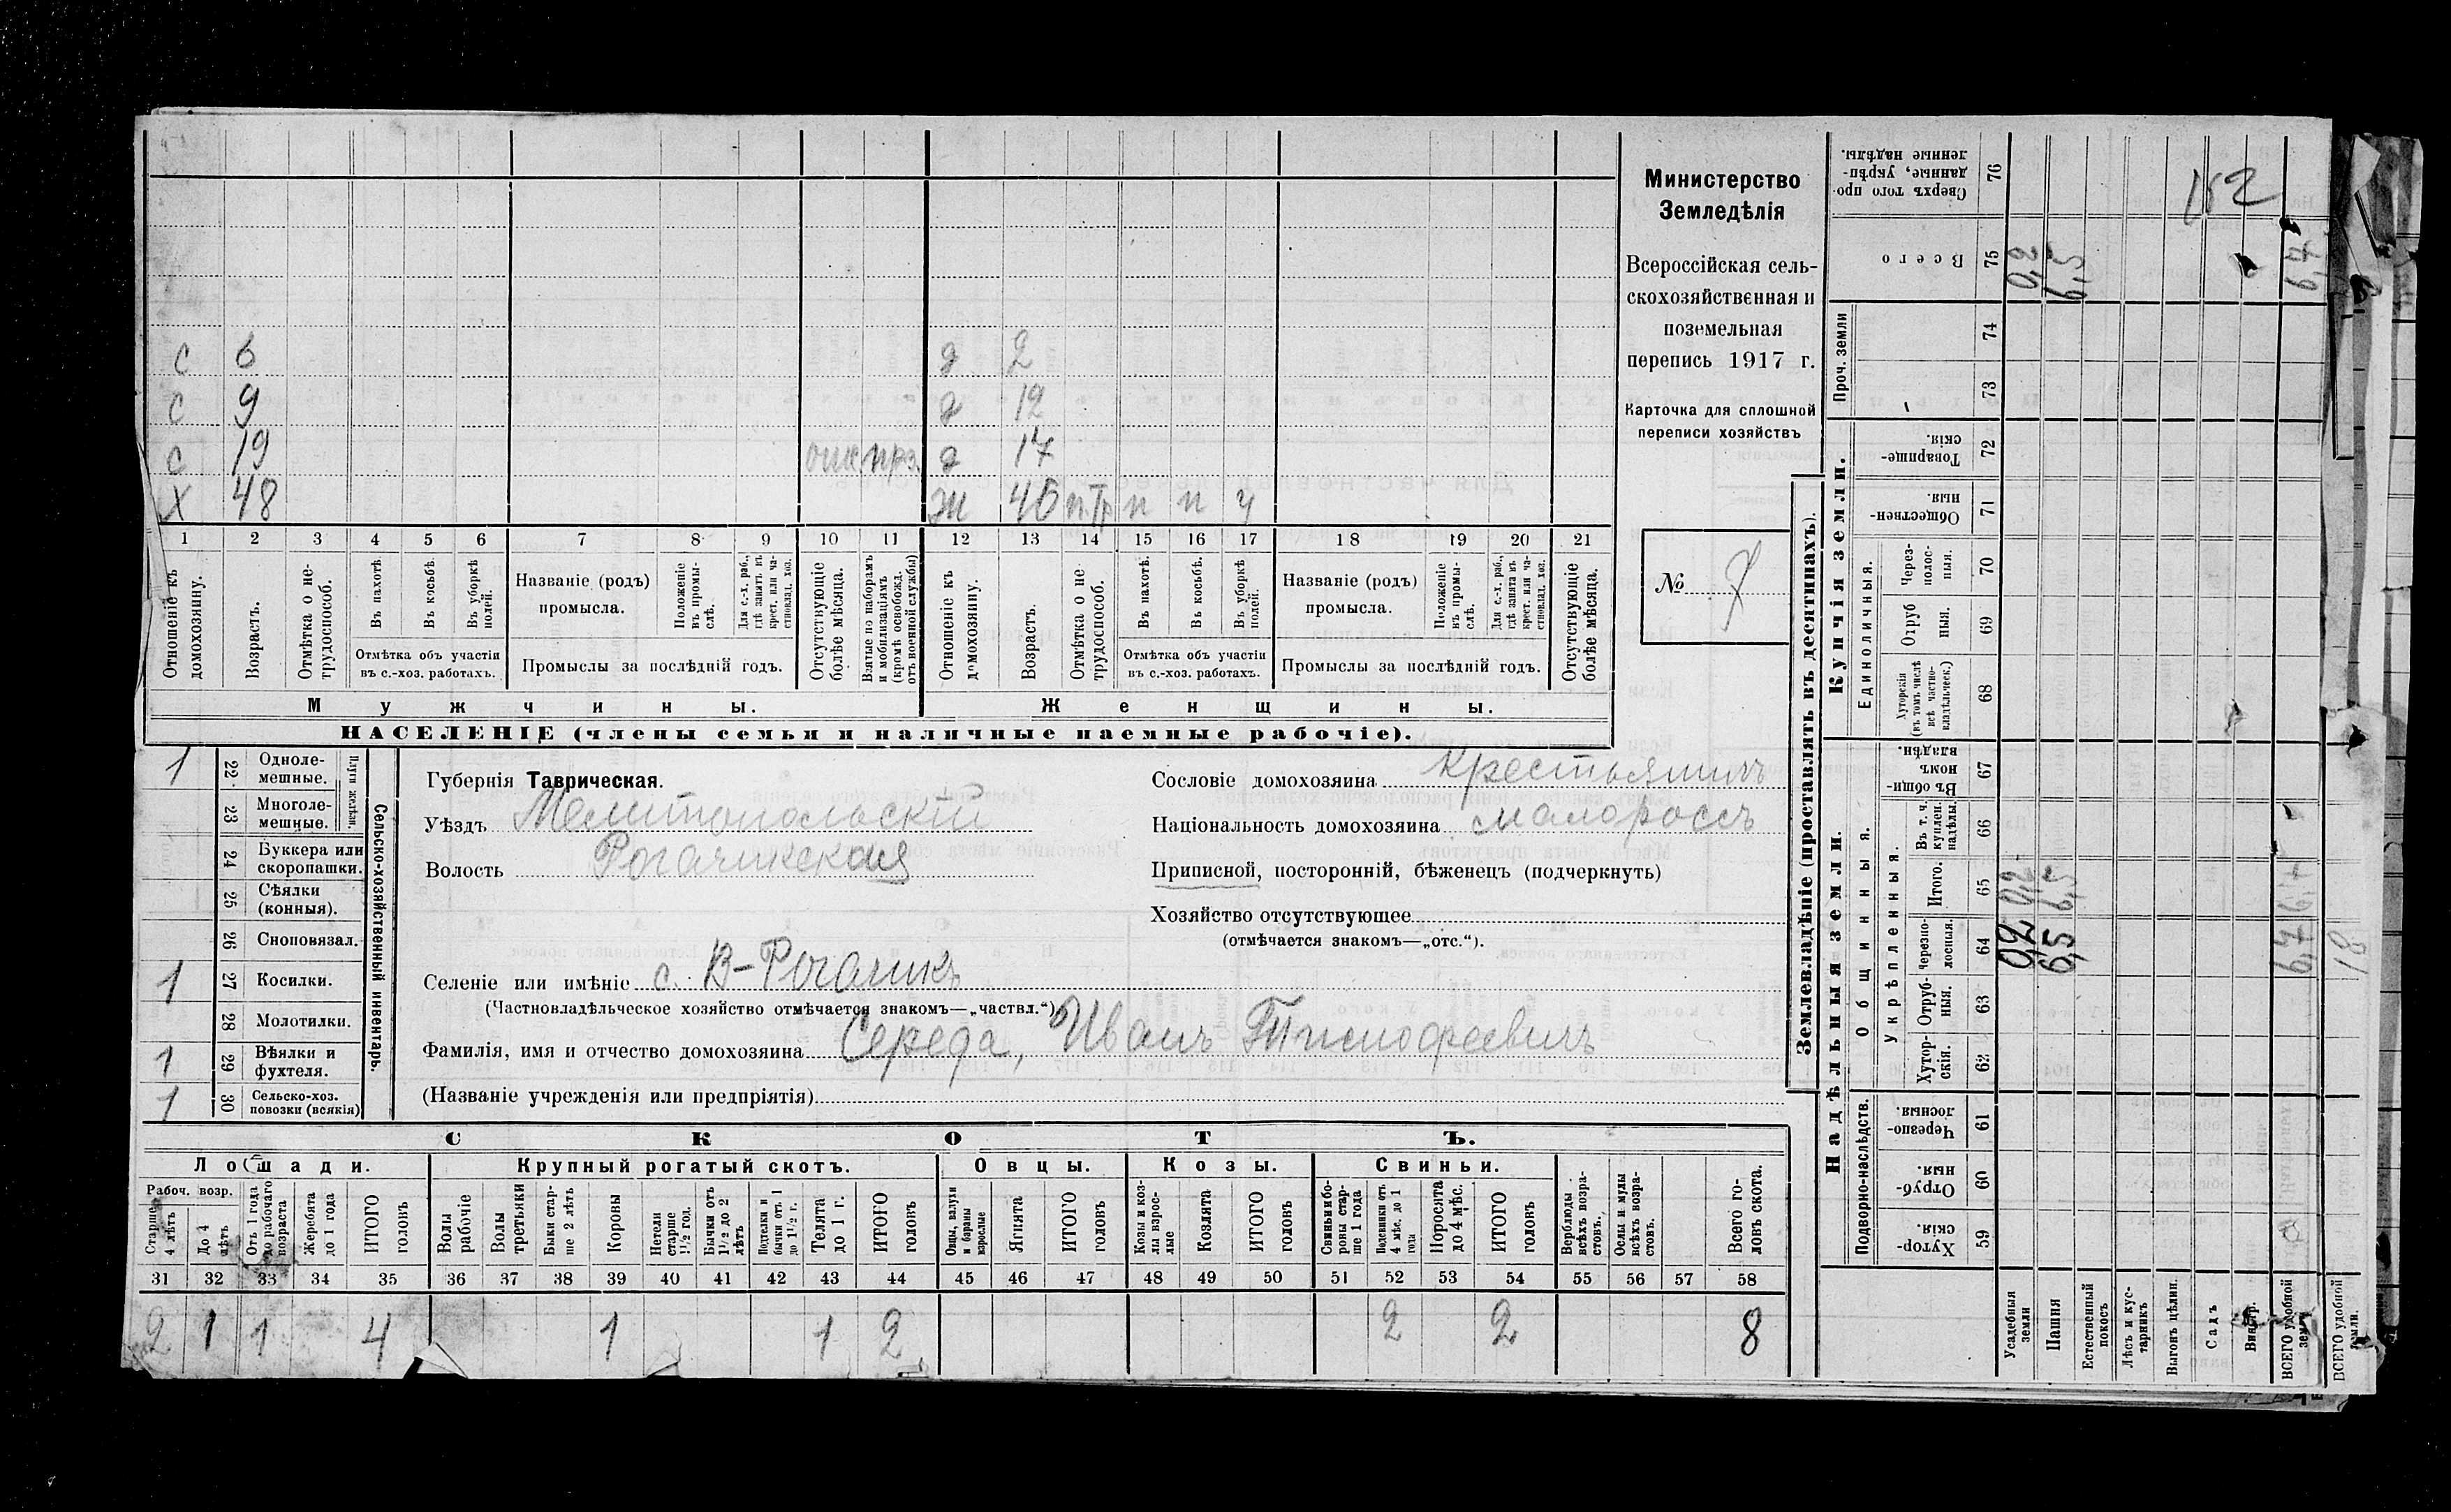 с 6 д 2
с 9 д 12
с 19 отс. прз. д 17
х 48 ж 45 п п ч
1 2 3 4 5 6 7 8 9 10 11 12 13 14 15 16 17 18 19 20 21
Отношеніе къ домохозяину.
Возрастъ.
Отмѣтка о нетрудоспособ.
Въ пахотѣ.
Въ косьбѣ.
Въ уборкѣ полей.
Отмѣтка объ участіи
въ с.-хоз. работахъ.
Названіе (родъ)
промысла.
Положеніе въ промыслѣ.
Для с.-х. раб., гдѣ занятъ въ крест. или частновлад. хоз.
Промыслы за послѣдній годъ.
Отсутствующіе болѣе мѣсяца.
Взятые по наборамъ и мобилизаціямъ (кромѣ освобожд. отъ военной службы)
Отношеніе къ домохозяину.
Возрастъ.
Отмѣтка о нетрудоспособ.
Въ пахотѣ.
Въ косьбѣ.
Въ уборкѣ полей.
Отмѣтка объ участіи
въ с.-хоз. работахъ.
Названіе (родъ)
промысла.
Положеніе въ промыслѣ.
Для с.-х. раб., гдѣ занята въ крест. или частновлад. хоз.
Промыслы за послѣдній годъ.
Отсутствующіе болѣе мѣсяца.
Мужчины. Женщины.
НАСЕЛЕНІЕ (члены семьи и наличные наемные рабочіе).
Министерство
Земледѣлія
Всероссійская сель-
скохозяйственная и
поземельная
перепись 1917 г.
Карточка для сплошной
переписи хозяйствъ
№ 7
1 22 Одноле-
мешные.
23 Многоле-
мешные.
Плуги желѣзн.
24 Буккера или
скоропашки.
25 Сѣялки
(конныя).
26 Сноповязал.
1 27 Косилки.
28 Молотилки.
1 29 Вѣялки и
фухтеля.
1 30 Сельско-хоз.
повозки (всякія)
Сельско-хозяйственный инвентарь.
Губернія Таврическая.
Уѣздъ Мелитопольскій
Волость Рогачикская
Сословіе домохозяина крестьянинъ
Національность домохозяина малороссъ
Приписной, посторонній, бѣженецъ (подчеркнуть)
Хозяйство отсутствующее
(отмѣчается знакомъ—„отс.“).
Селеніе или имѣніе с. В-Рогачикъ
(Частновладѣльческое хозяйство отмѣчается знакомъ—„частвл.“)
Фамилія, имя и отчество домохозяина Середа, Иванъ Тимофеевичъ
(Названіе учрежденія или предпріятія)
СКОТЪ.
Лошади. Крупный рогатый скотъ. Овцы. Козы. Свиньи.
Рабоч. возр.
Старше 4 лѣтъ
До 4 лѣтъ
Отъ 1 года до рабочаго возраста
Жеребята до 1 года
ИТОГО головъ
Волы рабочіе
Волы третьяки
Быки старше 2 лѣтъ
Коровы
Нетели старше 1½ год.
Бычки отъ 1½ до 2 лѣтъ
Подтелки и бычки отъ 1 до 1½ г.
Телята до 1 г.
ИТОГО головъ
Овцы, валухи и бараны взрослые
Ягнята
ИТОГО головъ
Козы и козлы взрослые
Козлята
ИТОГО головъ
Свиньи и боровы старше 1 года
Подсвинки отъ 4 мѣс. до 1 года
Поросята до 4 мѣс.
ИТОГО головъ
Верблюды всѣхъ возрастовъ.
Ослы и мулы всѣхъ возрастовъ.
Всего головъ скота.
31 32 33 34 35 36 37 38 39 40 41 42 43 44 45 46 47 48 49 50 51 52 53 54 55 56 57 58
2 1 1 4 1 1 2 2 2 8
Землевладѣніе (проставлять въ десятинахъ).
Надѣльныя земли. Купчія земли.
Подворно-наслѣдств.
Общинныя.
Укрѣпленныя.
Единоличныя.
Проч. земли
Сверхъ того проданные, укрѣпленные надѣлы. 76
Всего 75 0,2 6,5 6,7
74
73
Товарищескія. 72
Общественныя. 71
Черезполосныя. 70
Отрубныя. 69
Хуторскія (въ томъ числѣ всѣ частновладѣльческ.) 68
Въ общинномъ владѣн. 67
Въ т. ч. куплен. надѣлы. 66
Итого. 65 0,2 6,5 6,7
Черезполосныя. 64 0,2 6,5 6,7 18
Отрубныя. 63
Хуторскія. 62
Черезполосныя. 61
Отрубныя. 60
Хуторскія. 59
Усадебныя земли
Пашня
Естественный покосъ
Лѣсъ и кустарникъ
Выгонъ цѣлин.
Садъ
Виногр.
ВСЕГО удобной земли
ВСЕГО удобной земли.